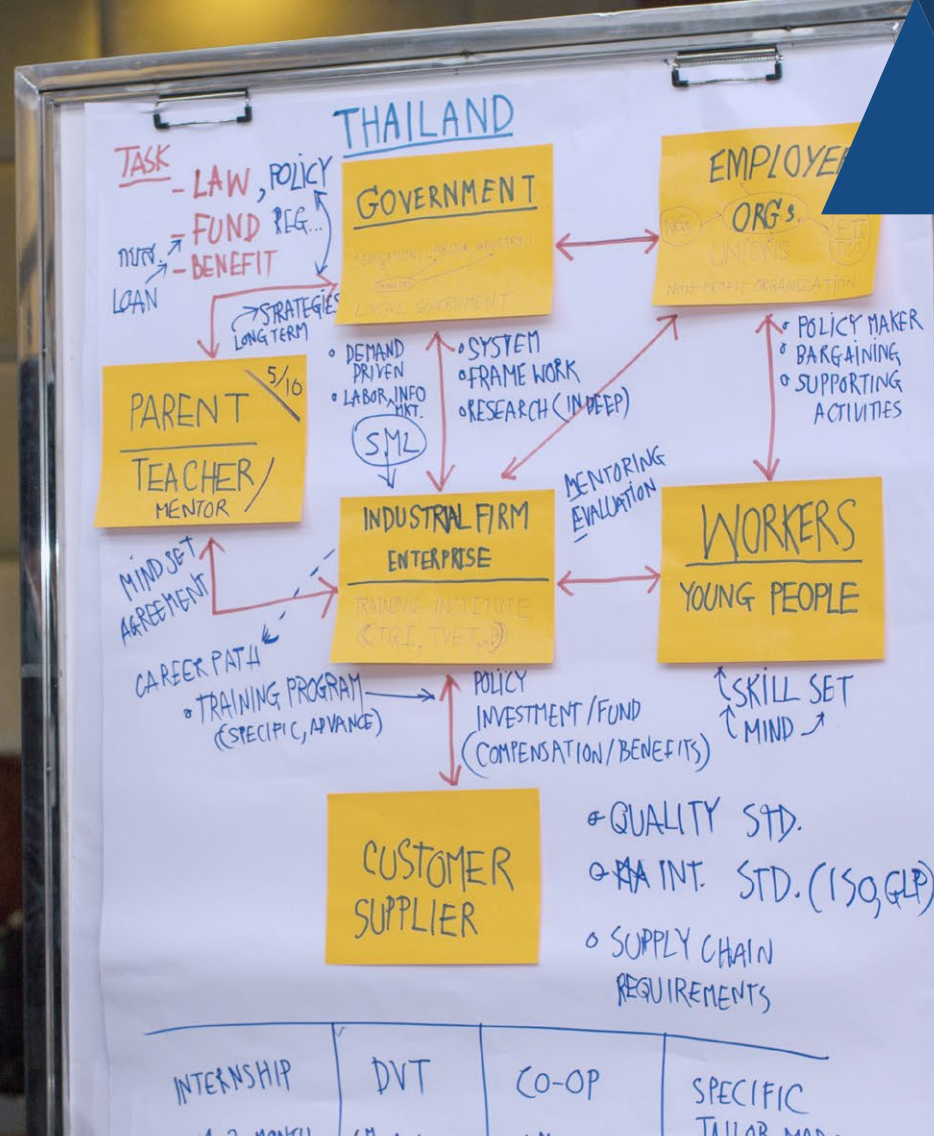 THAILAND
TASK
- LAW, POLICY
- FUND REG...
- BENEFIT
LOAN
STRATEGIES
LONG TERM
GOVERNMENT
LOCAL GOVERNMENT
EMPLOYE
ORGs.
NGO
UNIONS
NON-PROFIT ORGANIZATION
PARENT
5/16
TEACHER/
MENTOR
° DEMAND
DRIVEN
° LABOR, INFO
MKT.
SML
° SYSTEM
° FRAME WORK
° RESEARCH (IN DEEP)
° POLICY MAKER
° BARGAINING
° SUPPORTING
ACTIVITIES
MENTORING
EVALUATION
INDUSTRIAL FIRM
ENTERPRISE
TRAINING INSTITUTE
(TGI, TVET,..)
WORKERS
YOUNG PEOPLE
MIND SET
AGREEMENT
CAREER PATH
° TRAINING PROGRAM
(SPECIFIC, ADVANCE)
POLICY
INVESTMENT/FUND
(COMPENSATION/BENEFITS)
SKILL SET
MIND
CUSTOMER
SUPPLIER
° QUALITY STD.
° MAINT. STD. (ISO, GLP)
° SUPPLY CHAIN
REQUIREMENTS
INTERNSHIP
DVT
CO-OP
SPECIFIC